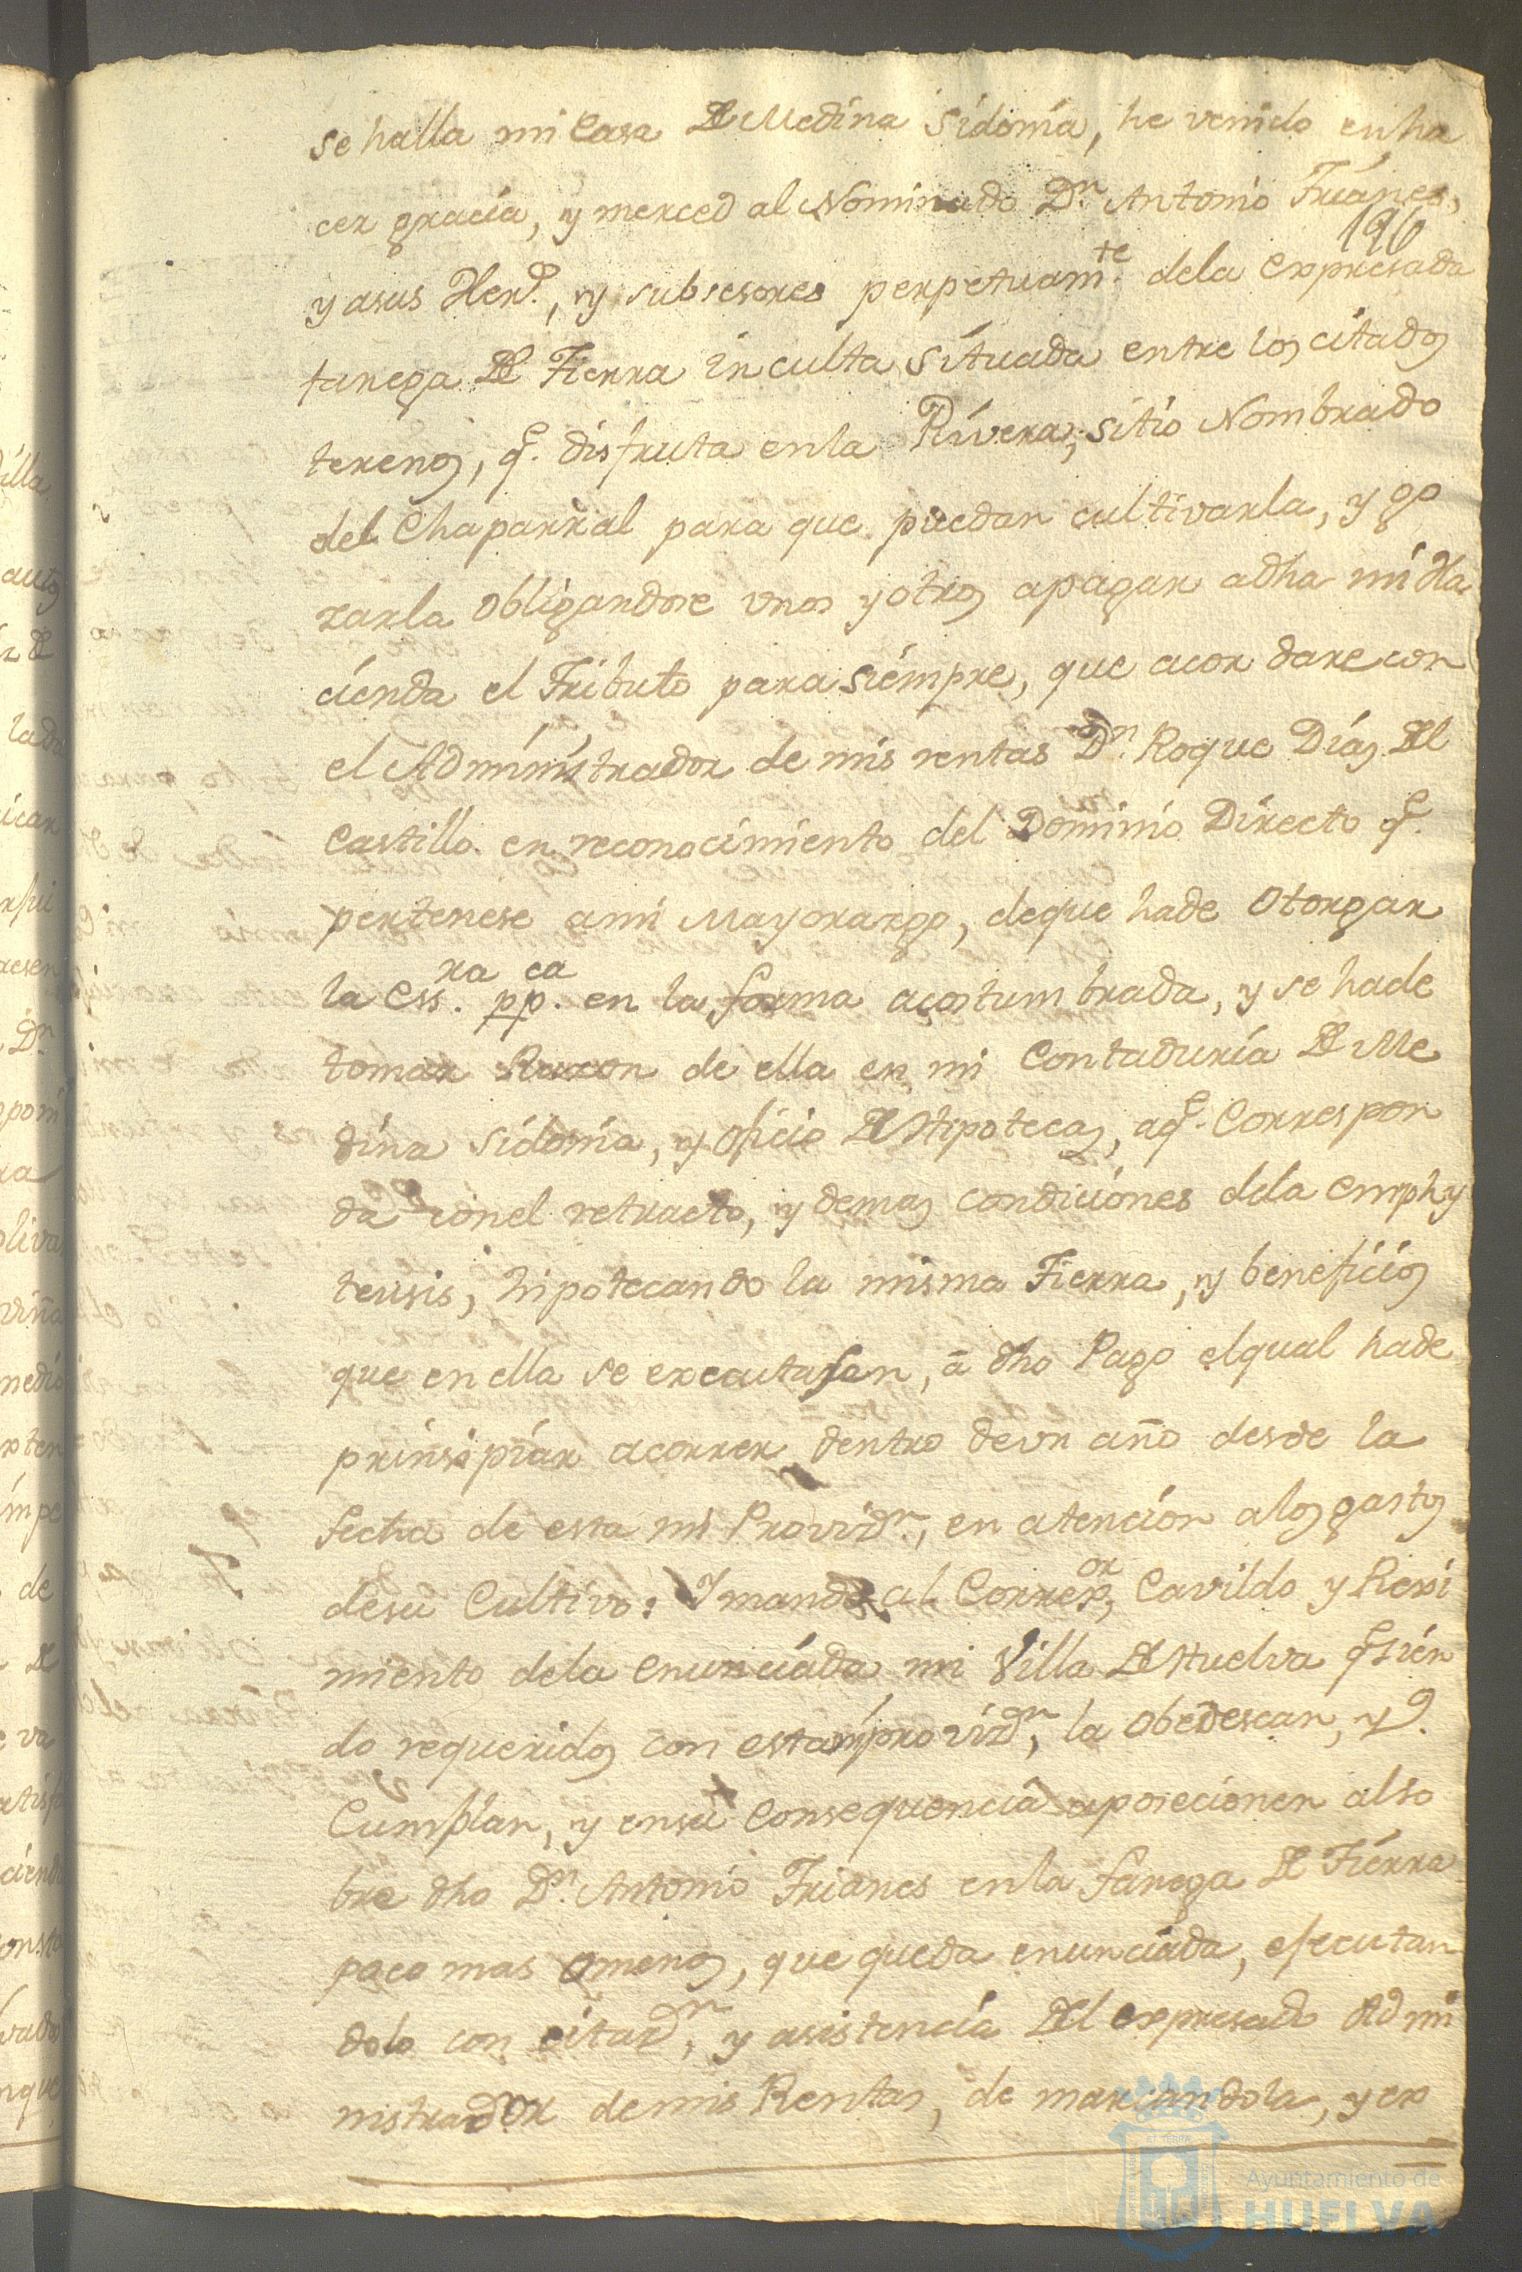 se halla mi Casa de Medina Sidonia, he venido en ha
cer gracia, y merced al Nominado Dn. Antonio Trianes,
196
y asus Herd., y subsesores perpetuamte. dela expresada
fanega de Tierra inculta situada entre los citados
terenos, q. disfruta enla Rivera, sitio Nombrado
del Chaparral para que puedan cultivarla, y go
zarla obligandose unos y otros apagar adha mi Ha
cienda el Tributo para siempre, que acordare con
el Administrador de mis rentas Dn. Roque Diaz del
Castillo en reconocimiento del Dominio Directo q.
pertenese ami Mayorazgo, deque hade Otorgar
la Essra. ppca. en la forma acostumbrada, y se hade
tomar Razon de ella en mi Contaduria de Me
dina Sidonia, y oficio de Hipotecas, aq. Correspon
da conel retracto, y demas condiciones dela emphy
teusis, hipotecando la misma Tierra, y beneficios
que en ella se executasen, â dho Pago elqual hade
prinsipiar acorrer dentro deun año desde la
fecha de esta mi Provizn., en atencion alos gastos
desu Cultivo: Y mando al Correxor, Cavildo y Rexi
miento dela enunciada mi Villa de Huelva q. sien
do requeridos con estamiprovizn, la Obedescan, y
Cumplan, y ensu Consequencia aposecionen also
bre dho Dn. Antonio Trianes enla fanega de Tierra
poco mas omenos, que queda enunciada, efecutan
dolo con citazn, y asistencia del expresado Admi
nistrador demis Rentas, de marcandola, y ex
Ayuntamiento de
HUELVA